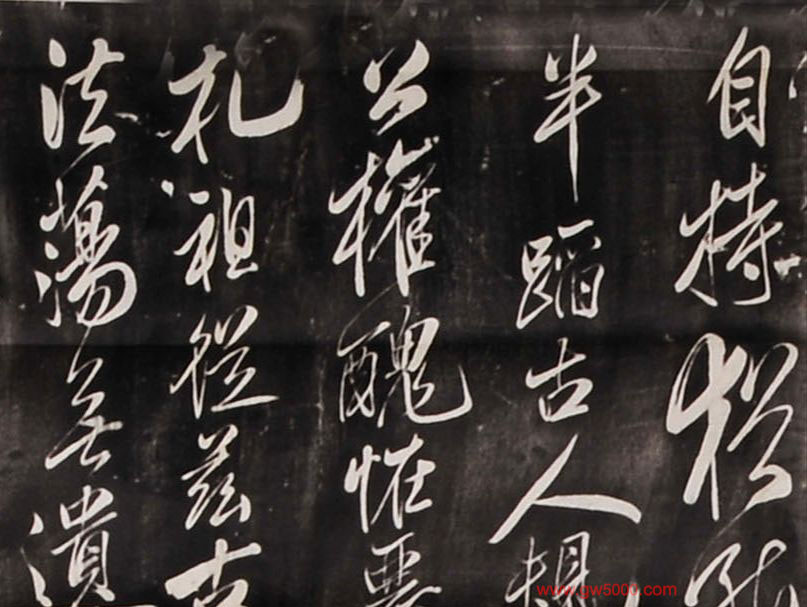 自持猶能
半蹈古人規
公權醜怪惡
札祖從茲古
法蕩無遺
www.gw5000.com